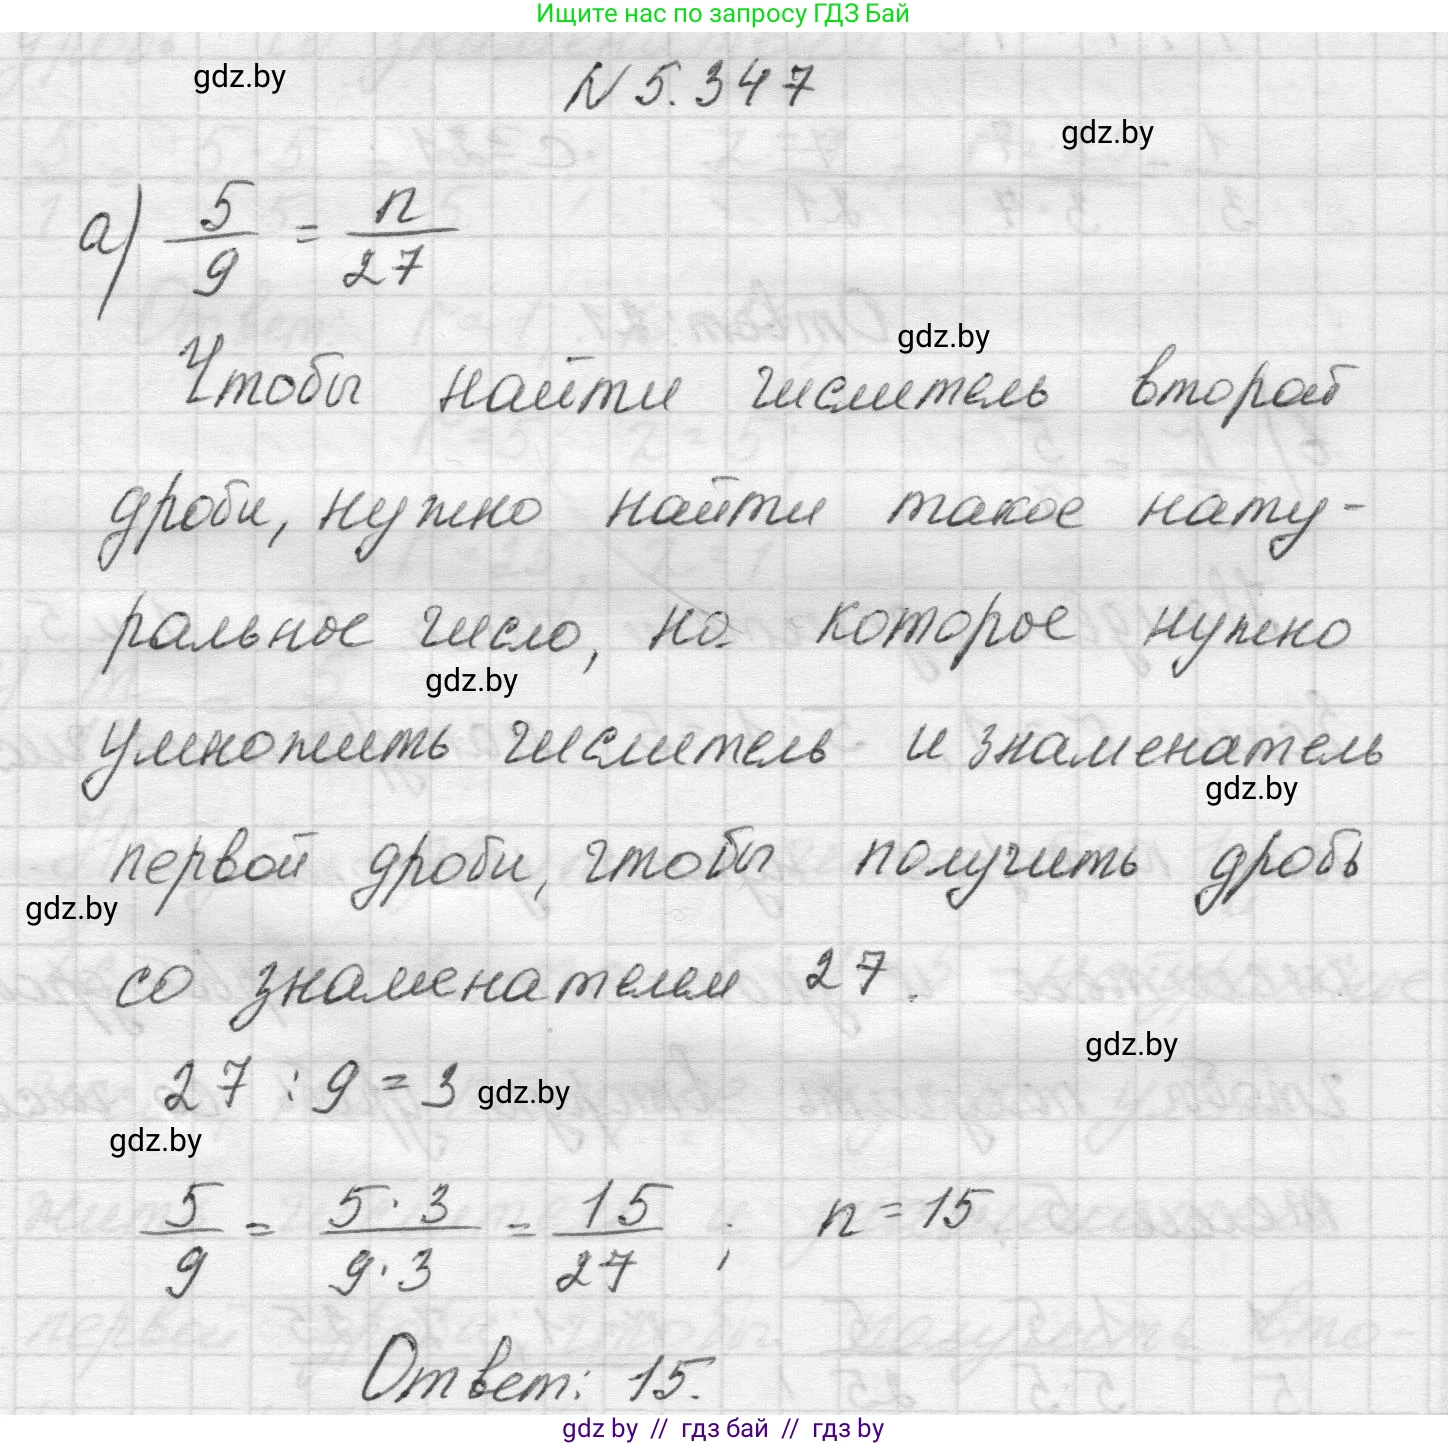 Ищите нас по запросу ГДЗ Бай
gdz.by
N 5.347
gdz.by
а) 5/9 = n/27
gdz.by
Чтобы найти числитель второй
дроби, нужно найти такое нату-
ральное число, на которое нужно
gdz.by
умножить числитель и знаменатель
gdz.by
первой дроби, чтобы получить дробь
gdz.by
со знаменателем 27.
gdz.by
27 : 9 = 3
gdz.by
gdz.by
5/9 = 5·3/9·3 = 15/27 ; n = 15
Ответ: 15.
gdz.by // гдз бай // гдз by